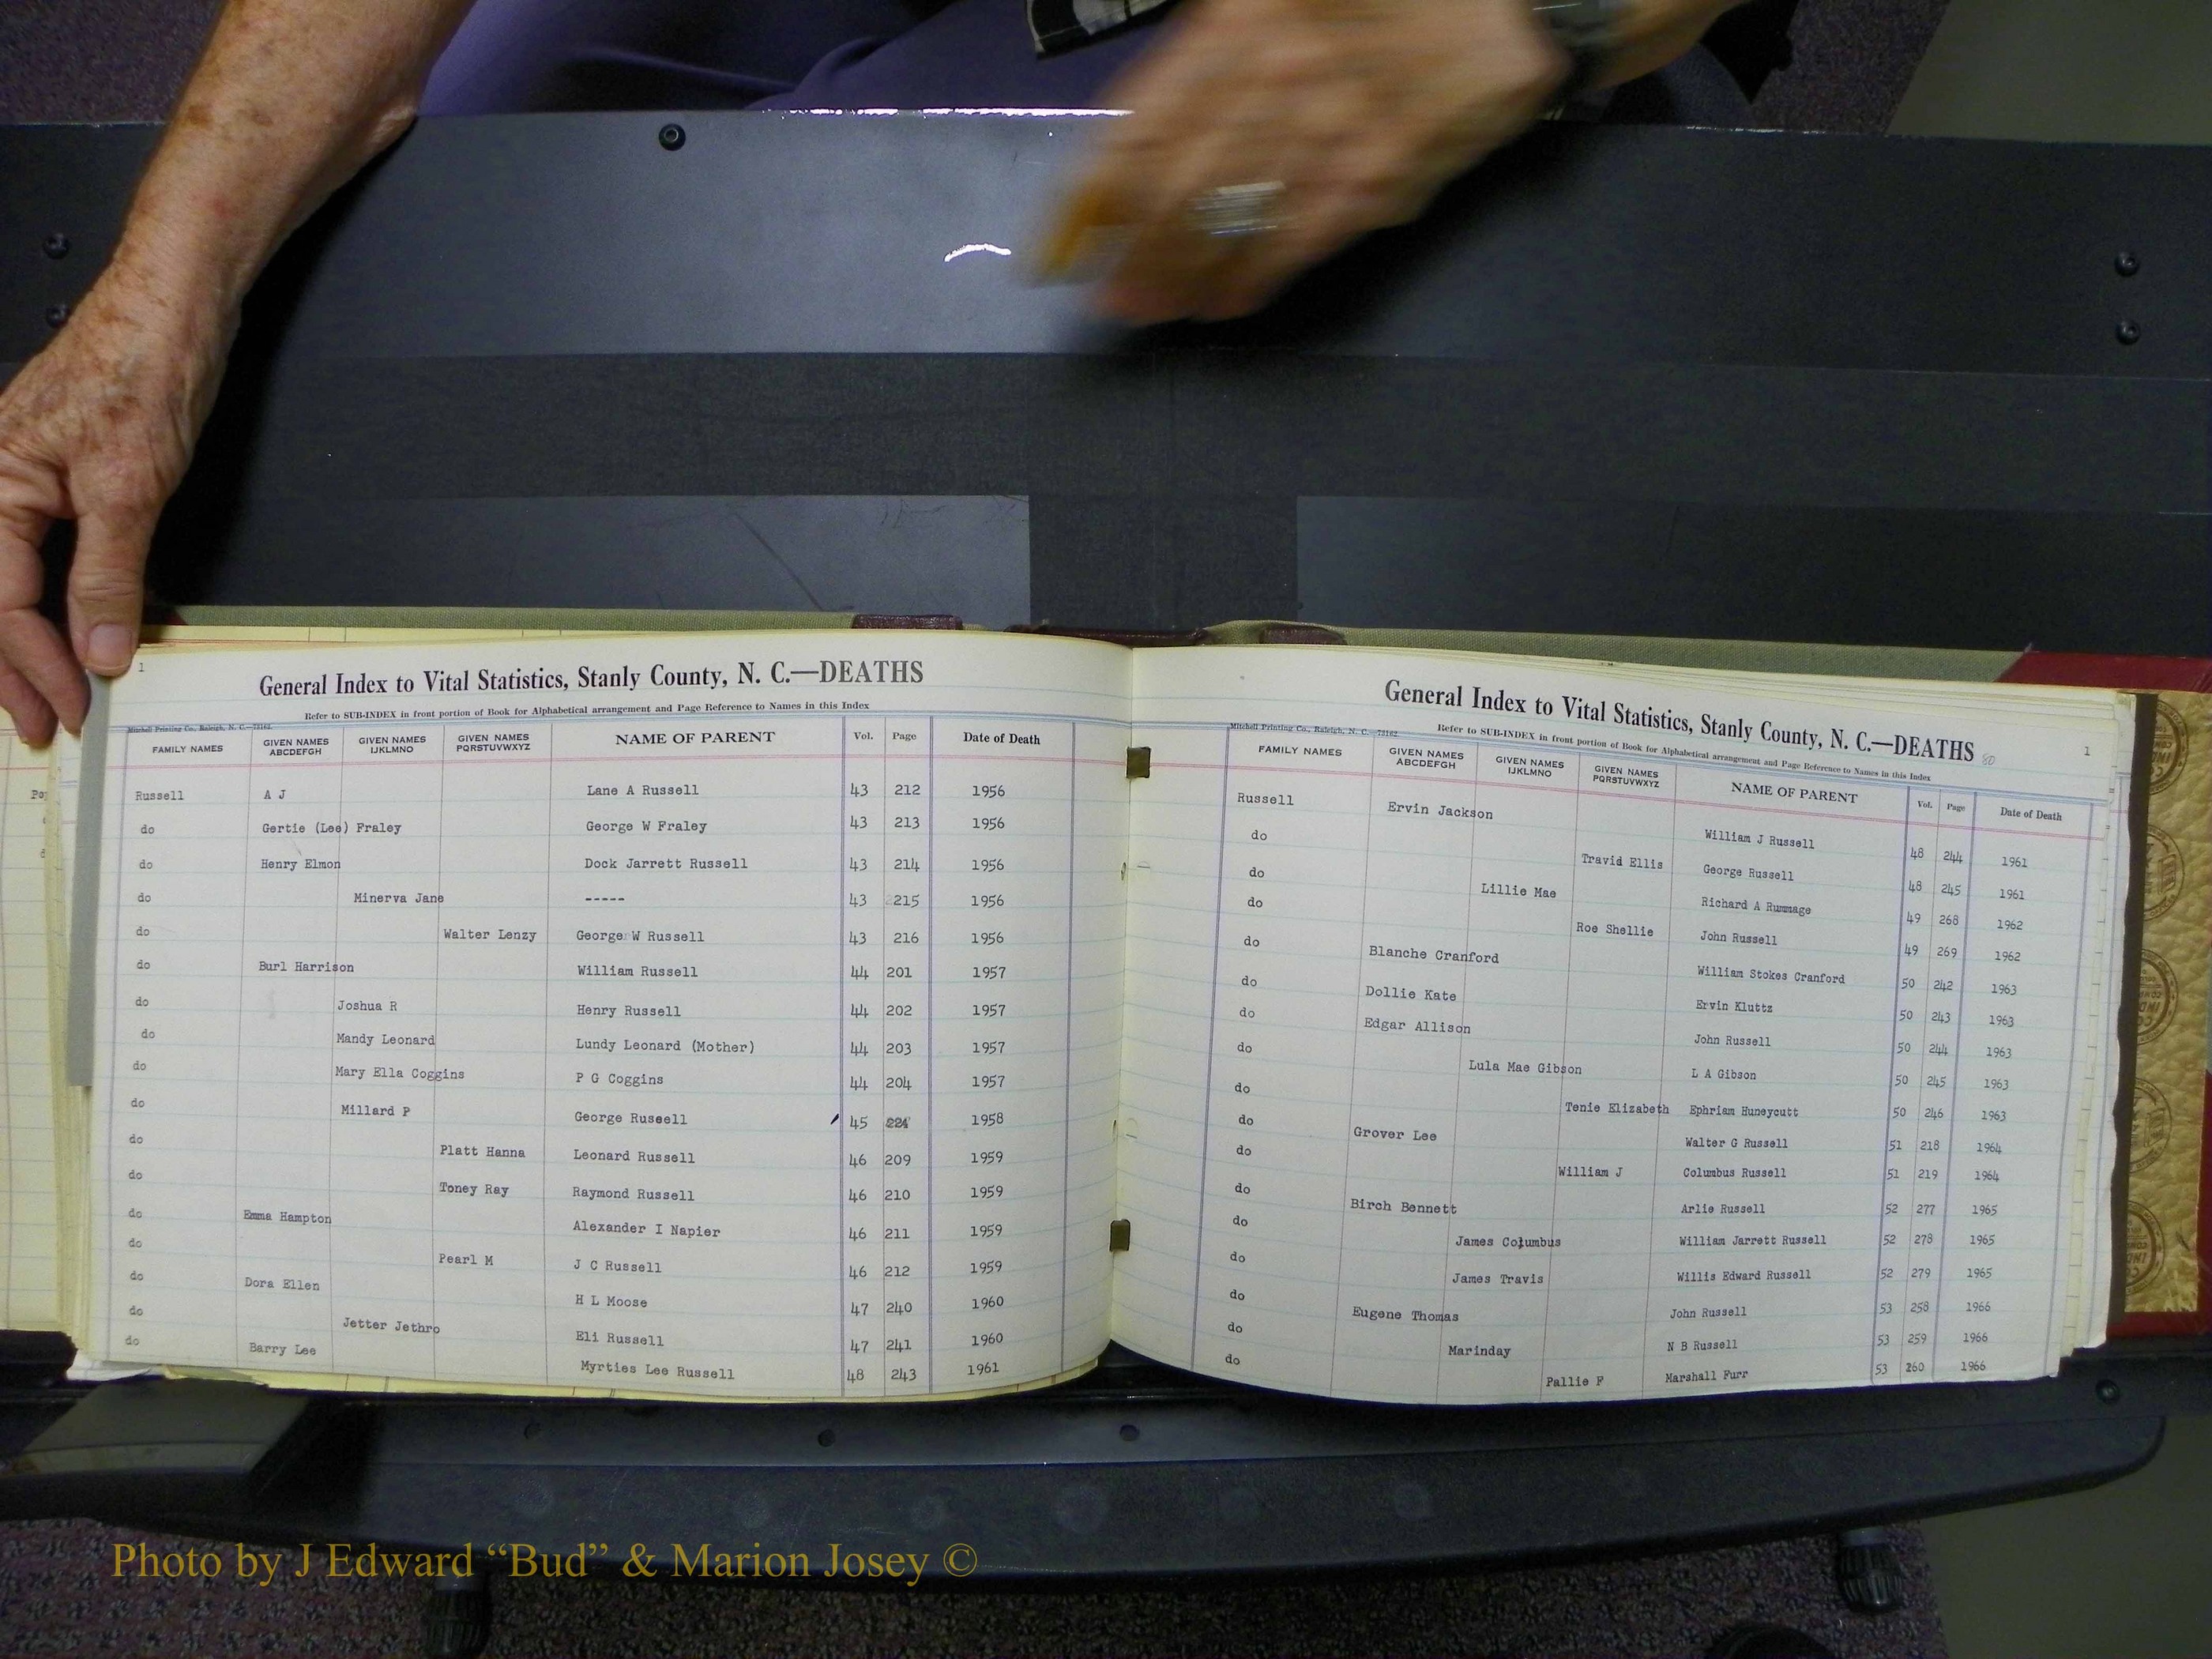 1
General Index to Vital Statistics, Stanly County, N. C.—DEATHS
Refer to SUB-INDEX in front portion of Book for Alphabetical arrangement and Page Reference to Names in this Index
Mitchell Printing Co., Raleigh, N. C.—73162
FAMILY NAMES GIVEN NAMES ABCDEFGH GIVEN NAMES IJKLMNO GIVEN NAMES PQRSTUVWXYZ NAME OF PARENT Vol. Page Date of Death
Russell A J Lane A Russell 43 212 1956
do Gertie (Lee) Fraley George W Fraley 43 213 1956
do Henry Elmon Dock Jarrett Russell 43 214 1956
do Minerva Jane ----- 43 215 1956
do Walter Lenzy George W Russell 43 216 1956
do Burl Harrison William Russell 44 201 1957
do Joshua R Henry Russell 44 202 1957
do Mandy Leonard Lundy Leonard (Mother) 44 203 1957
do Mary Ella Coggins P G Coggins 44 204 1957
do Millard P George Russell 45 224 1958
do Platt Hanna Leonard Russell 46 209 1959
do Toney Ray Raymond Russell 46 210 1959
do Emma Hampton Alexander I Napier 46 211 1959
do Pearl M J C Russell 46 212 1959
do Dora Ellen H L Moose 47 240 1960
do Jetter Jethro Eli Russell 47 241 1960
do Barry Lee Myrties Lee Russell 48 243 1961
General Index to Vital Statistics, Stanly County, N. C.—DEATHS 80
1
Mitchell Printing Co., Raleigh, N. C.—73162
Refer to SUB-INDEX in front portion of Book for Alphabetical arrangement and Page Reference to Names in this Index
FAMILY NAMES GIVEN NAMES ABCDEFGH GIVEN NAMES IJKLMNO GIVEN NAMES PQRSTUVWXYZ NAME OF PARENT Vol. Page Date of Death
Russell Ervin Jackson William J Russell 48 244 1961
do Travid Ellis George Russell 48 245 1961
do Lillie Mae Richard A Rummage 49 268 1962
do Roe Shellie John Russell 49 269 1962
do Blanche Cranford William Stokes Cranford 50 242 1963
do Dollie Kate Ervin Kluttz 50 243 1963
do Edgar Allison John Russell 50 244 1963
do Lula Mae Gibson L A Gibson 50 245 1963
do Tenie Elizabeth Ephriam Huneycutt 50 246 1963
do Grover Lee Walter G Russell 51 218 1964
do William J Columbus Russell 51 219 1964
do Birch Bennett Arlie Russell 52 277 1965
do James Columbus William Jarrett Russell 52 278 1965
do James Travis Willis Edward Russell 52 279 1965
do Eugene Thomas John Russell 53 258 1966
do Marinday N B Russell 53 259 1966
do Pallie F Marshall Furr 53 260 1966
Photo by J Edward “Bud” & Marion Josey ©